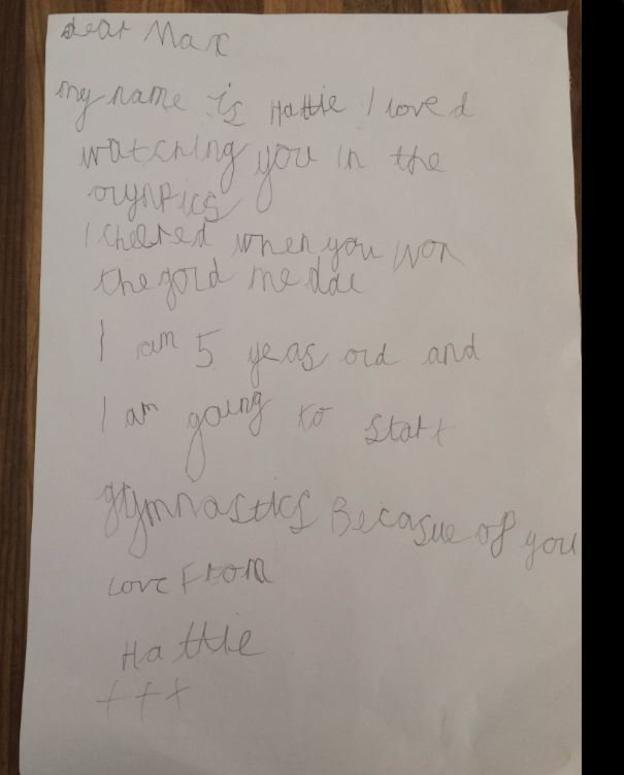 dear Max
my name is Hattie I loved
watching you in the
olynpics
I cheered when you won
the gold meddl
I am 5 yeas old and
I am going to start
gymnastics Becasue of you
Love From
Hattie
+++